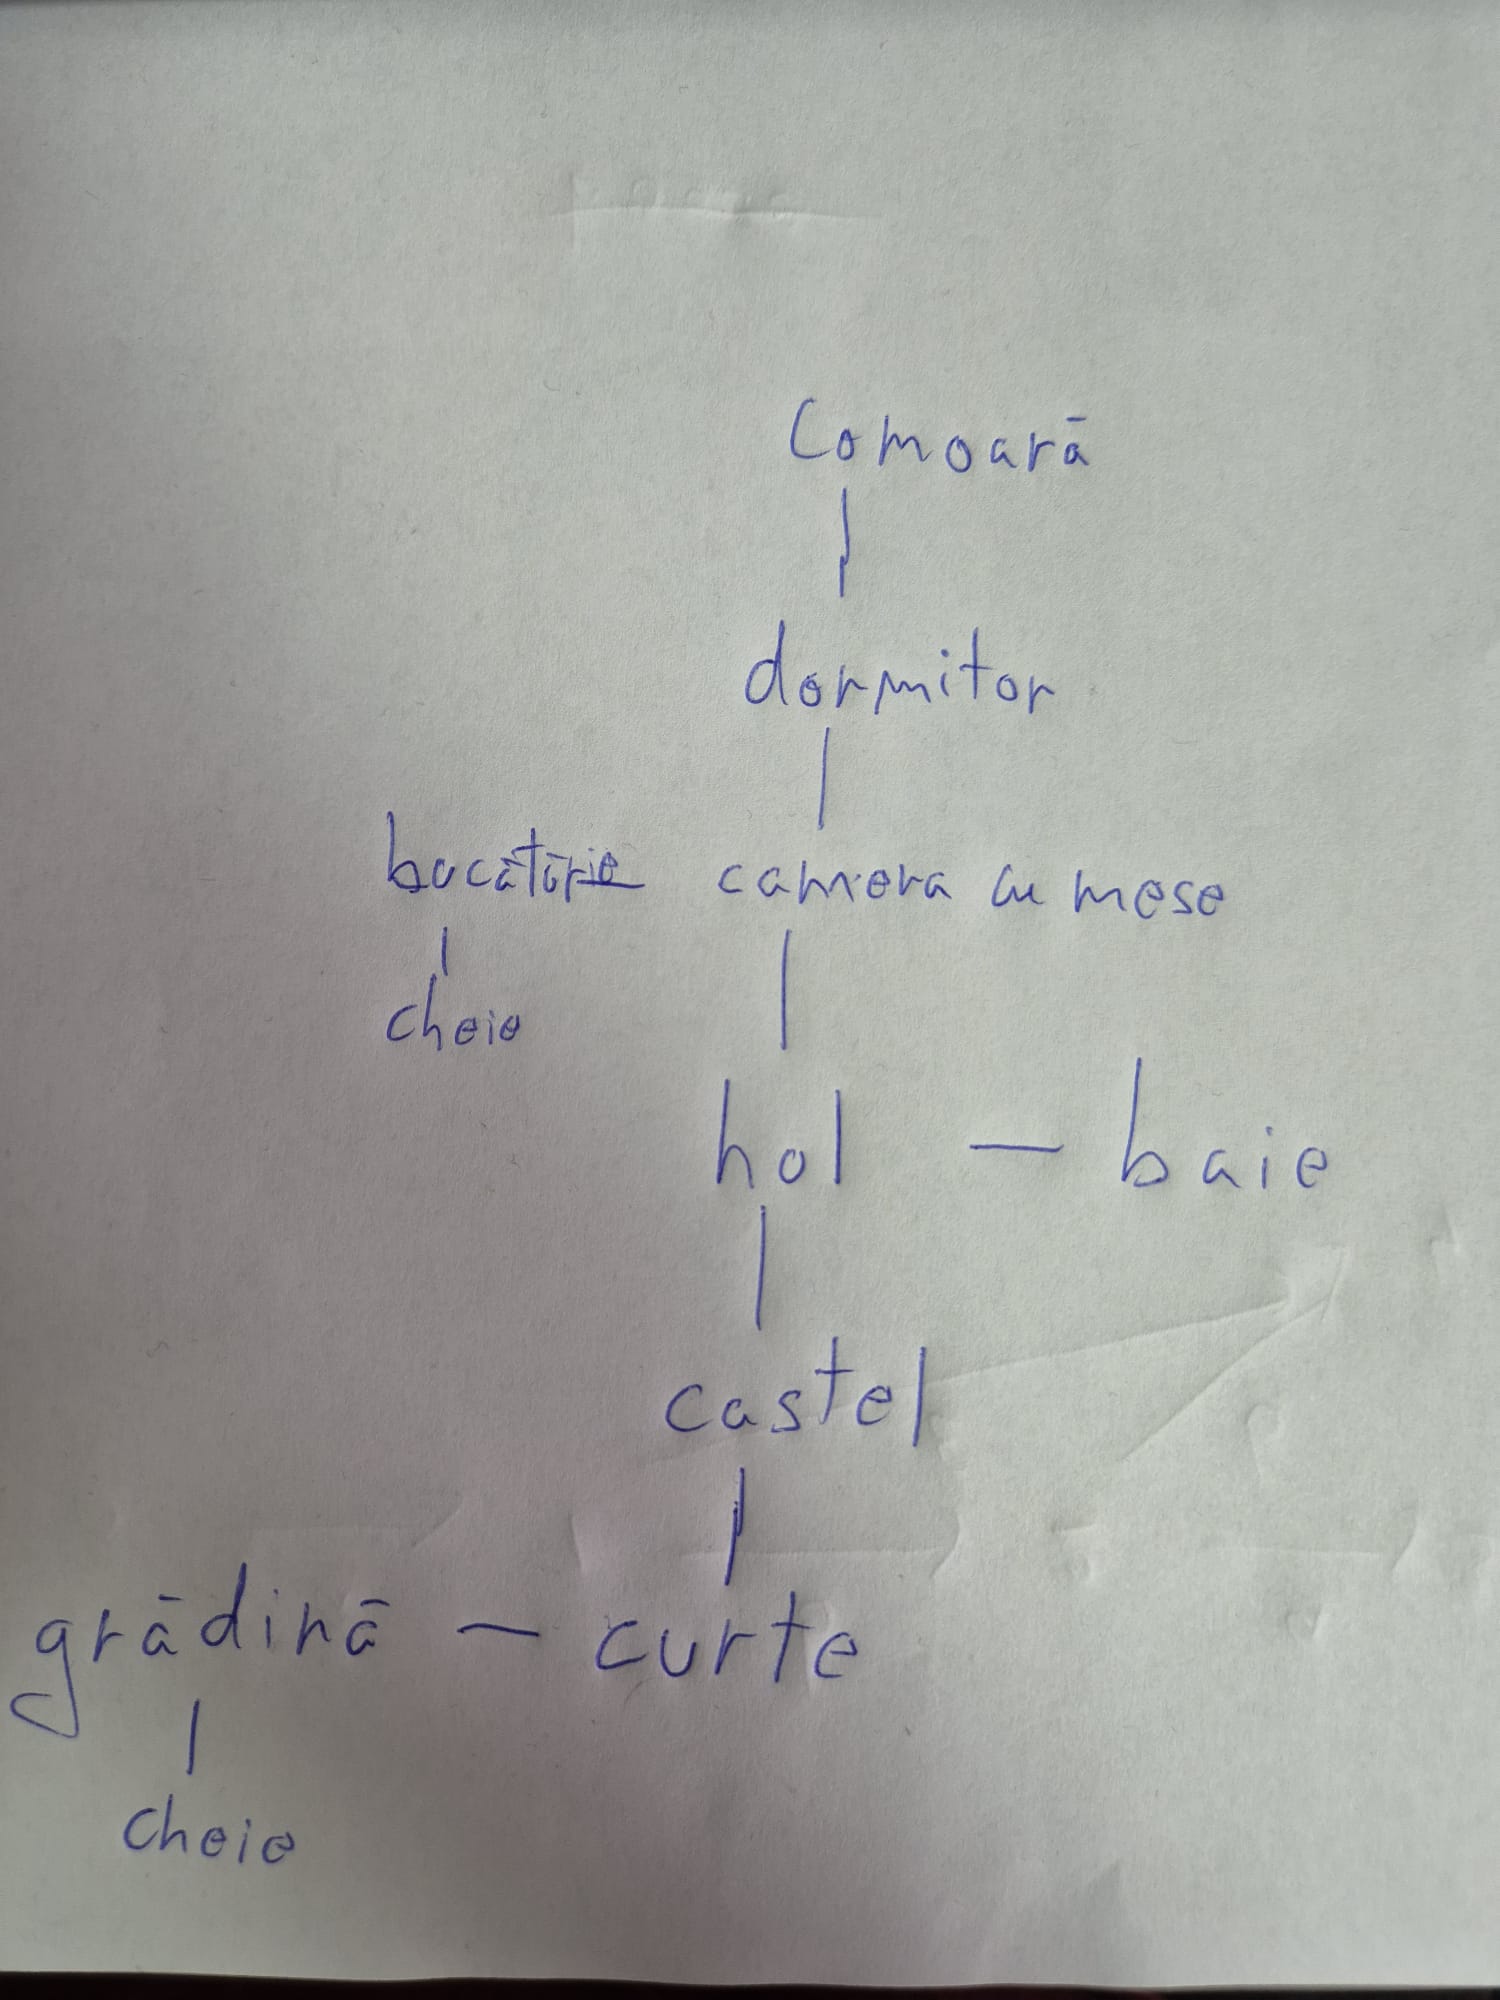 Comoară
dormitor
bucătărie camera cu mese
cheie
hol - baie
castel
grădină - curte
cheie